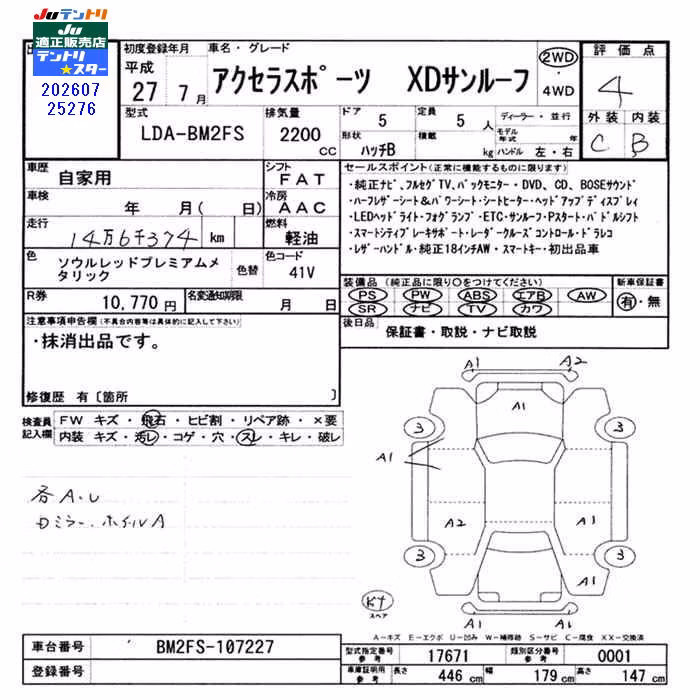 Juテントリ
Ju
適正販売店
テントリ
★スター
202607
25276
初度登録年月
平成
27 7月
車名・グレード
アクセラスポーツ XDサンルーフ
2WD
4WD
評価点
4
外装 内装
C B
型式
LDA-BM2FS
排気量
2200
cc
ドア 5
定員 5 人
形状
ハッチB
積載
kg
ディーラー・並行
モデル年式 年
ハンドル 左・右
車歴
自家用
シフト
FAT
車検
年 月( 日)
冷房
AAC
走行
14万6千374 km
燃料
軽油
色
ソウルレッドプレミアムメタリック
色替
色コード
41V
R券
10,770円
名変通知期限
月 日
セールスポイント(正常に機能するものに限ります)
・純正ナビ、フルセグTV、バックモニター・DVD、CD、BOSEサウンド
・ハーフレザーシート&パワーシート・シートヒーター・ヘッドアップディスプレイ
・LEDヘッドライト・フォグランプ・ETC・サンルーフ・Pスタート・パドルシフト
・スマートシティブレーキサポート・レーダークルーズコントロール・ドラレコ
・レザーハンドル・純正18インチAW・スマートキー・初出品車
装備品(純正品に限り○をつけてください)
PS PW ABS エアB AW
SR ナビ TV カワ
新車保証書
有・無
後日品
保証書・取説・ナビ取説
注意事項申告欄(不具合内容等は具体的に記入して下さい)
・抹消出品です。
修復歴 有〔箇所 〕
検査員
記入欄
FW キズ・飛石・ヒビ割・リペア跡・×要
内装 キズ・汚レ・コゲ・穴・スレ・キレ・破レ
各A・U
Dミラー、ホイルA
A1 A2
A1
3 3
A1
A2 A1
3 3
A1
A1 A1
スペア
A-キズ E-エクボ U-凹み W-補修跡 S-サビ C-腐食 XX-交換済
車台番号
BM2FS-107227
登録番号
型式指定番号
参考
17671
類別区分番号
参考
0001
車庫証明用
参考
長さ 446 cm
幅 179 cm
高さ 147 cm